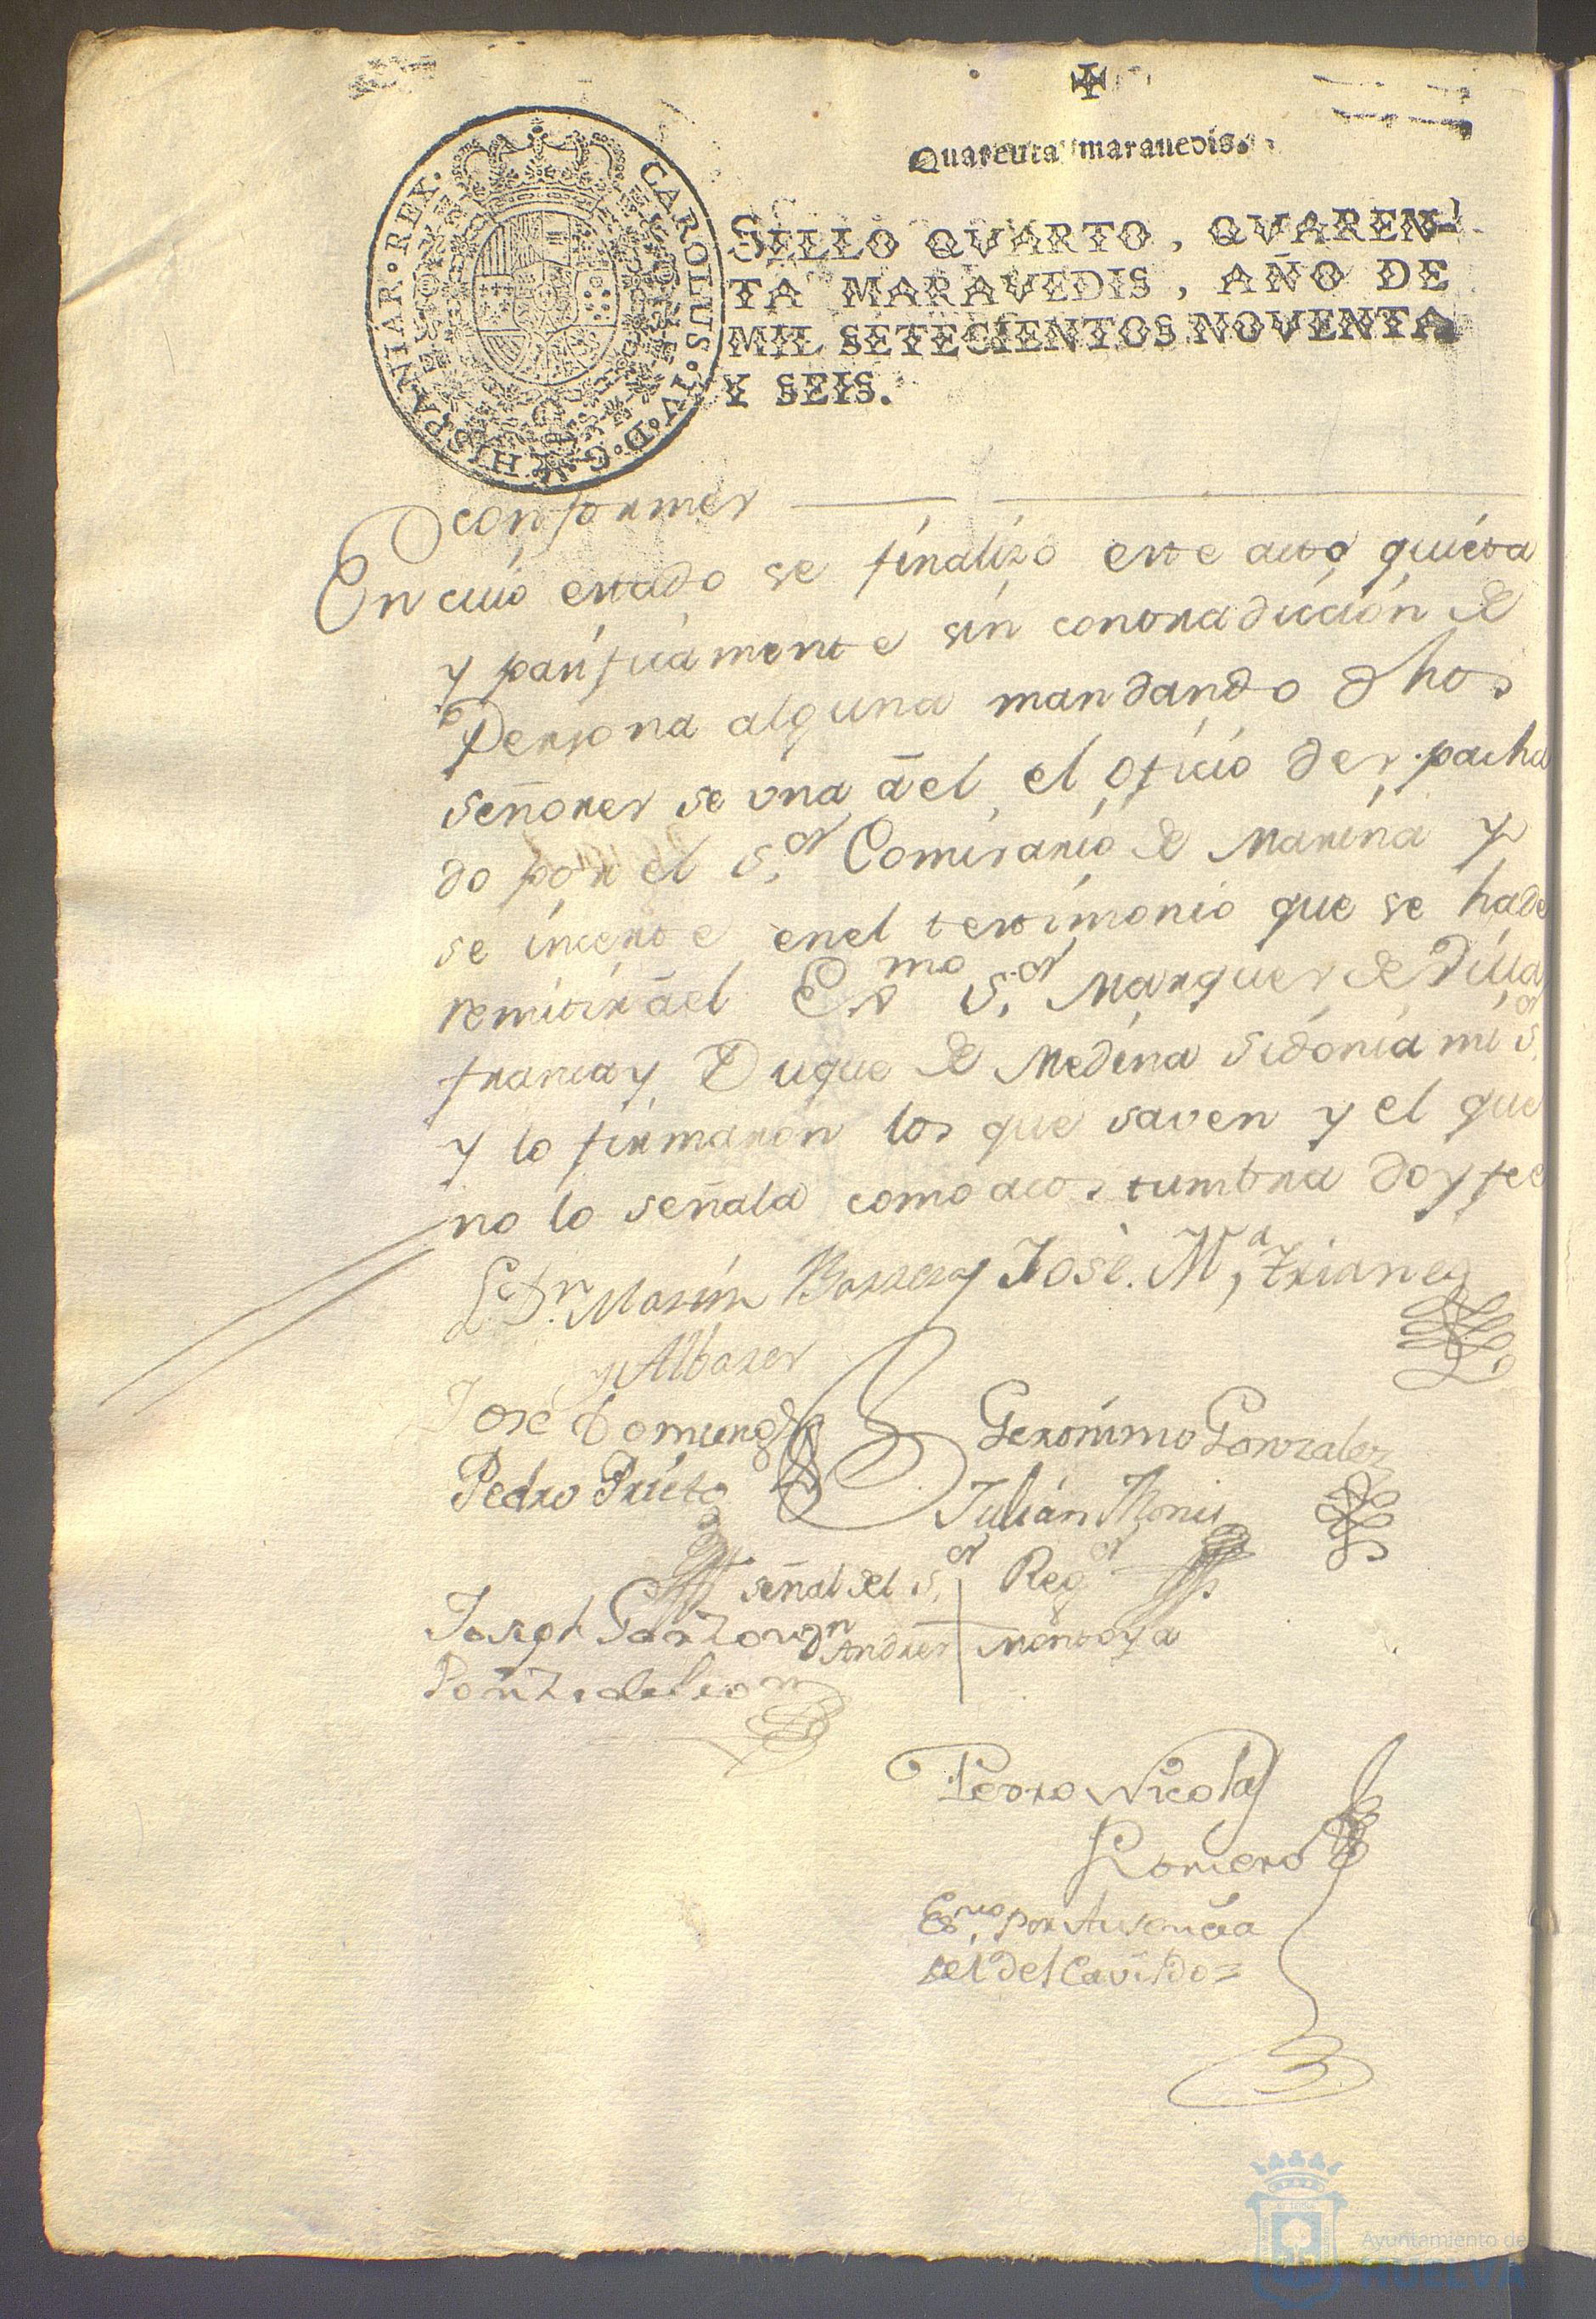 ✠
Quarenta maravedis.
CAROLUS·IV·D·G·HISPANIAR·REX·
SELLO QVARTO, QVAREN-
TA MARAVEDIS, AÑO DE
MIL SETECIENTOS NOVENTA
Y SEIS.
conformes
En cuio estado se finalizò este acto quieta
y pasificamente sin contradicion de
Persona alguna mandando dhos
señores se vna âel el oficio despacha
do por el S.or Comisario de Marina y
se incerte enel testimonio que se hade
remitir âel Exmo S.or Marques de Villa
franca y Duque de Medina Sidonia mi S.or
y lo firmaron los que saven y el que
no lo señala como acostumbra doy fee
Lcdo. Dn. Martin Barrera José. Ma, Trianes
y Albares
José Domingz
Geronimo Gonzalez
Pedro Prieto
Julián Monis
señal del S.or Regor
Joseph Garzon
Andres Montoya
Ponze de leon
Pedro Nicolas
Romero
Esno por Ausencia
del del Cavildo=
Ayuntamiento de
HUELVA